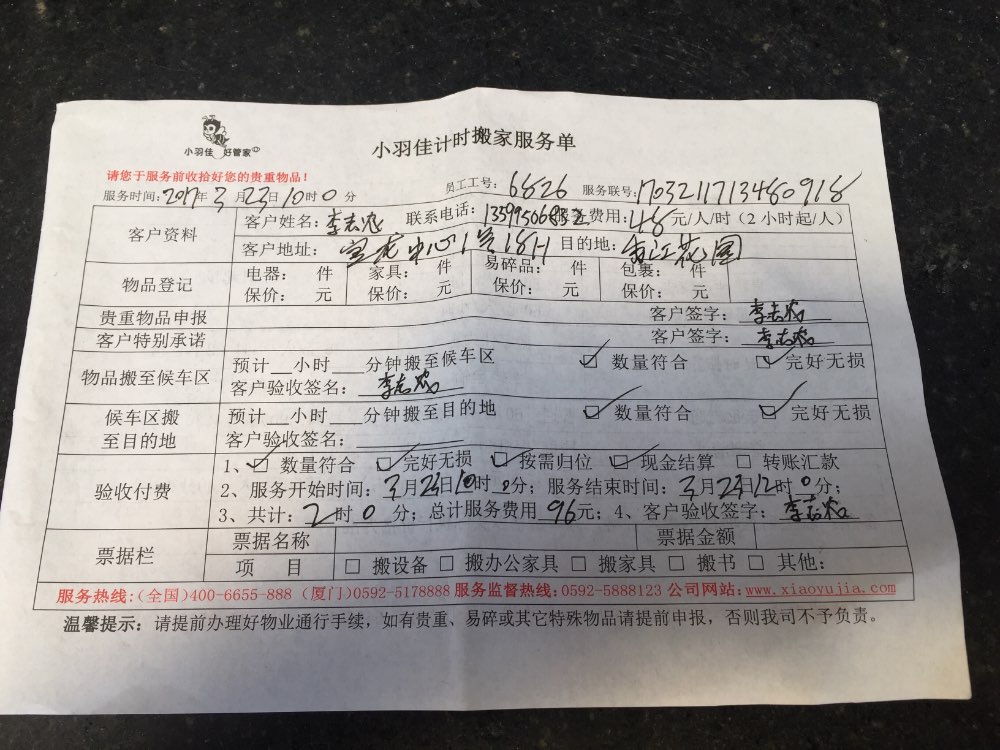 小羽佳 好管家
小羽佳计时搬家服务单
请您于服务前收拾好您的贵重物品!
服务时间:2017年3月23日10时0分 员工工号:6826 服务联号:1703211713480918
客户资料 客户姓名:李志 联系电话: 服务费用:48元/人/时(2小时起/人)
客户地址:宝龙中心1号18H 目的地:江花园
物品登记 电器: 件 家具: 件 易碎品: 件 包裹: 件
保价: 元 保价: 元 保价: 元 保价: 元
贵重物品申报 客户签字:李志
客户特别承诺 客户签字:李志
物品搬至候车区 预计__小时___分钟搬至候车区 数量符合 完好无损
客户验收签名:李志
候车区搬至目的地 预计__小时___分钟搬至目的地 数量符合 完好无损
客户验收签名:
验收付费 1、数量符合 完好无损 按需归位 现金结算 转账汇款
2、服务开始时间:3月23日10时0分;服务结束时间:3月23日12时0分;
3、共计:2时0分;总计服务费用96元;4、客户验收签字:李志
票据栏 票据名称 票据金额
项 目 搬设备 搬办公家具 搬家具 搬书 其他:
服务热线:(全国)400-6655-888 (厦门)0592-5178888 服务监督热线:0592-5888123 公司网站:www.xiaoyujia.com
温馨提示:请提前办理好物业通行手续,如有贵重、易碎或其它特殊物品请提前申报,否则我司不予负责。